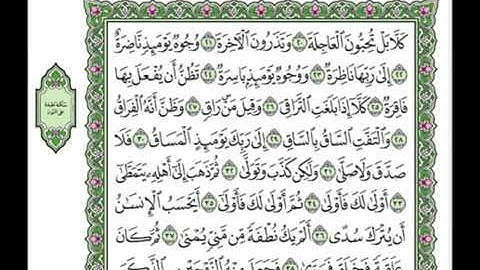 كَلَّا بَلْ تُحِبُّونَ الْعَاجِلَةَ ٢٠ وَتَذَرُونَ الْآخِرَةَ ٢١ وُجُوهٌ يَوْمَئِذٍ نَاضِرَةٌ
٢٢ إِلَى رَبِّهَا نَاظِرَةٌ ٢٣ وَوُجُوهٌ يَوْمَئِذٍ بَاسِرَةٌ ٢٤ تَظُنُّ أَنْ يُفْعَلَ بِهَا
فَاقِرَةٌ ٢٥ كَلَّا إِذَا بَلَغَتِ التَّرَاقِيَ ٢٦ وَقِيلَ مَنْ رَاقٍ ٢٧ وَظَنَّ أَنَّهُ الْفِرَاقُ
٢٨ وَالْتَفَّتِ السَّاقُ بِالسَّاقِ ٢٩ إِلَى رَبِّكَ يَوْمَئِذٍ الْمَسَاقُ ٣٠ فَلَا
صَدَّقَ وَلَا صَلَّى ٣١ وَلَكِنْ كَذَّبَ وَتَوَلَّى ٣٢ ثُمَّ ذَهَبَ إِلَى أَهْلِهِ يَتَمَطَّى
٣٣ أَوْلَى لَكَ فَأَوْلَى ٣٤ ثُمَّ أَوْلَى لَكَ فَأَوْلَى ٣٥ أَيَحْسَبُ الْإِنْسَانُ
أَنْ يُتْرَكَ سُدًى ٣٦ أَلَمْ يَكُ نُطْفَةً مِنْ مَنِيٍّ يُمْنَى ٣٧ ثُمَّ كَانَ